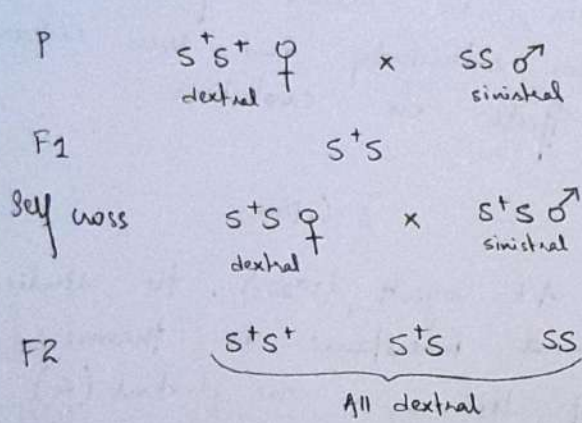 P s⁺s⁺ ♀ × ss ♂
dextral sinistral
F1 s⁺s
Self cross s⁺s ♀ × s⁺s ♂
dextral sinistral
F2 s⁺s⁺ s⁺s ss
All dextral